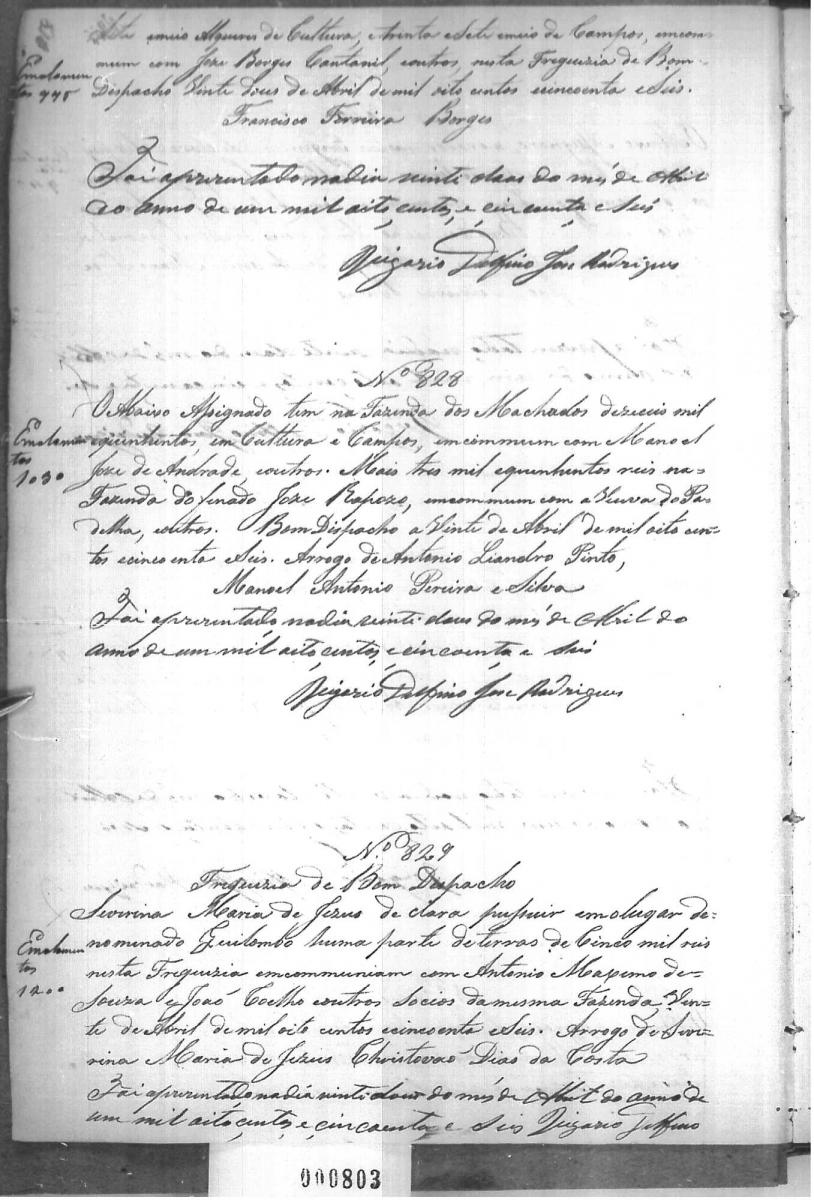 Sete emeio Alqueires de Cultura, etrinta eSete emeio de Campos, emcom=
mum com Joze Borges Cantanil, eoutros, nesta Freguizia de Bom=
Emolumen
tos 775
Dispacho Vinte dous de Abril de mil oito centos ecincoenta eSeis.
Francisco Ferreira Borges
Foi aprezentado nodia vinte dous do mes de Abril
do anno de um mil oito centos, e cincoenta e Seis
Vigario Delfino Jose Rodrigues
Nº 828
O Abaixo Assignado tem na Fazenda dos Machados dezeceis mil
Emolumen
tos
1030
equinhentos, em Cultura e Campos, emcommum com Manoel
Joze de Andrade, eoutros. Mais tres mil equinhentos reis na=
Fazenda do finado Joze Rapozo, emcommum com a Veuva do Pa=
delha, eoutros. Bom Dispacho a Vinte de Abril de mil oito cen=
tos ecincoenta eSeis. Arrogo de Antonio Liandro Pinto,
Manoel Antonio Pereira e Silva
Foi aprezentado nodia vinte dous do mes de Abril do
anno de um mil oito centos, e cincoenta e Seis
Vigario Delfino Jose Rodrigues
N.º 829
Freguizia de Bom Despacho
Severina Maria de Jezus de clara pussuir emolugar de=
Emolumen
tos
1200
nominado Quilombo huma parte deterras de Cinco mil reis
nesta Freguizia emcommuniam com Antonio Maximo de=
Souza e João Coelho eoutros Socios damesma Fazenda Vin=
te de Abril de mil oito centos ecincoenta eSeis. Arrogo de Seve=
rina Maria de Jezus Christovaõ Dias da Costa
Foi aprezentado nodia vinte dous do mes de Abril do anno de
um mil oito centos, e cincoenta e Seis Vigario Delfino
000803